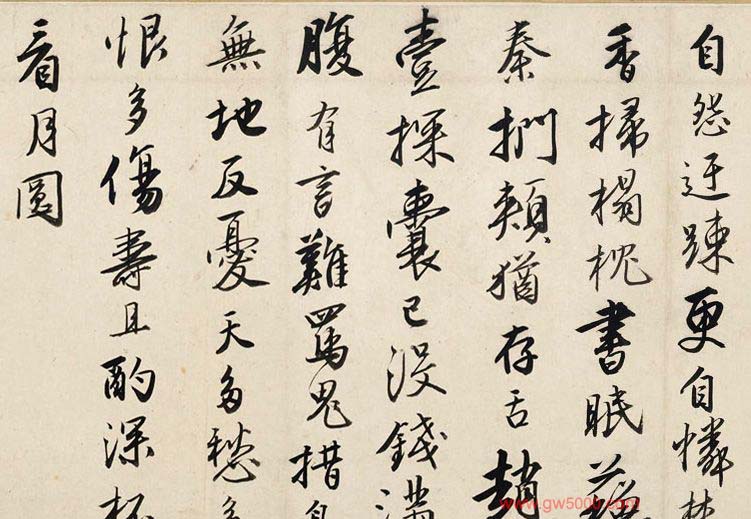 自怨迂踈更自憐焚
香掃榻枕書眠蘇
秦捫頰猶存舌趙
壹探囊已沒錢滿
腹有言難罵鬼措身
無地反憂天多愁多
恨多傷壽且酌深杯
看月圓
www.gw5000.com